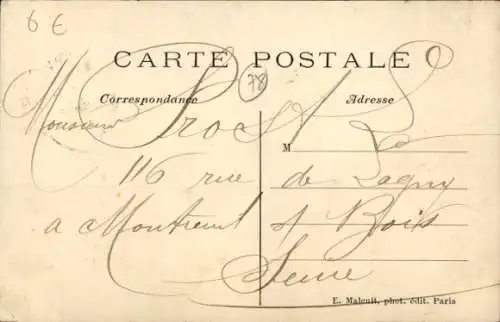 6 €
CARTE POSTALE
78
Correspondance
Adresse
Monsieur Prost
M
116 rue de Lagny
a Montreuil s/ Bois
Seine
E. Malcuit, phot. édit. Paris